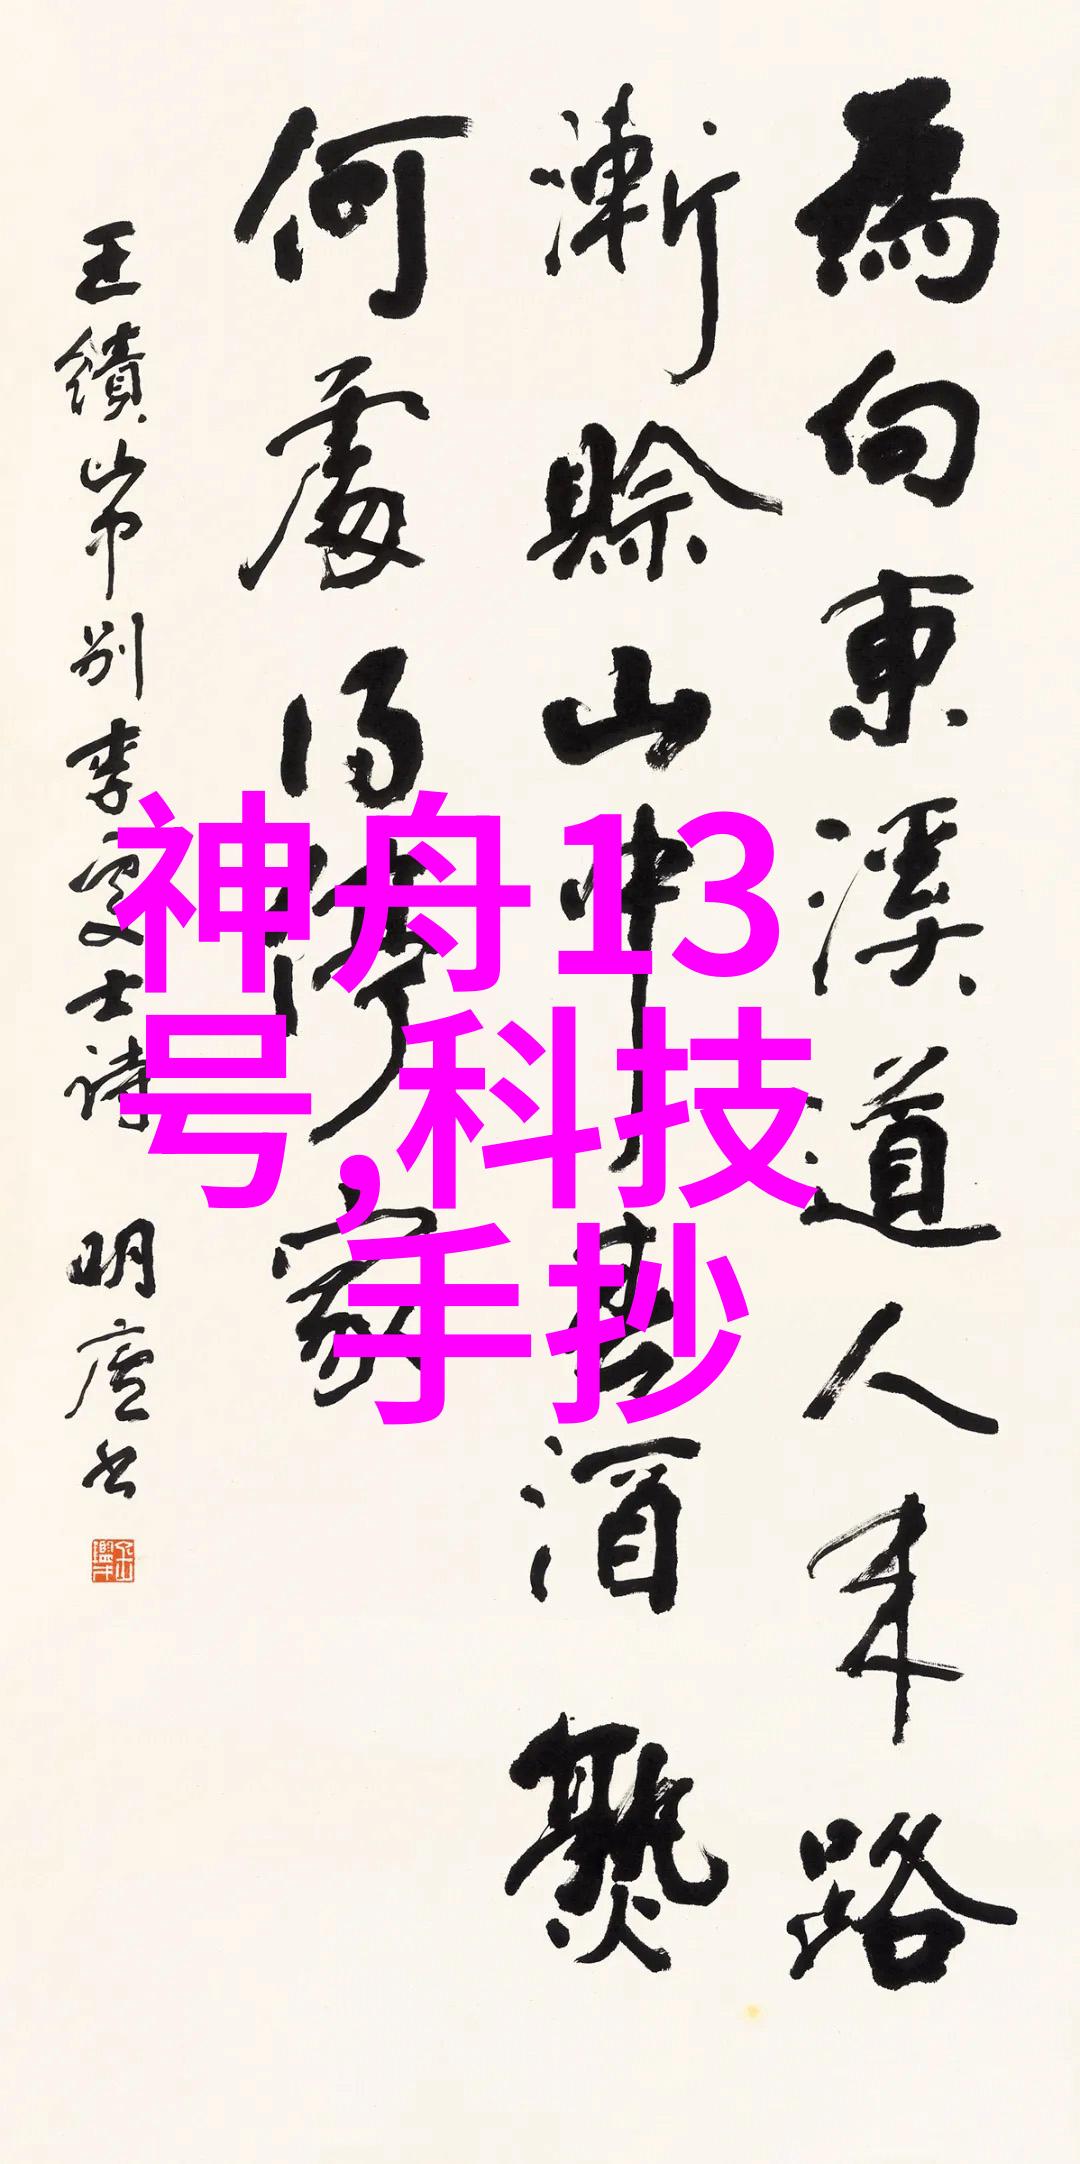 為向東溪道人來路
漸賒山中春酒熟
何處得停家
王績山中別李處士詩
明廬書
神舟13
号,科技
手抄